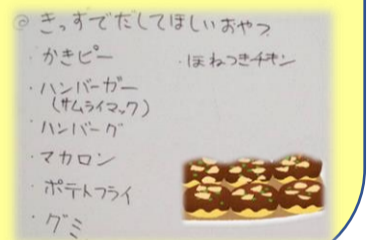 ◎ きっずでだしてほしいおやつ
・かきピー
・ハンバーガー
(サムライマック)
・ハンバーグ
・マカロン
・ポテトフライ
・グミ
・ほねつきチキン